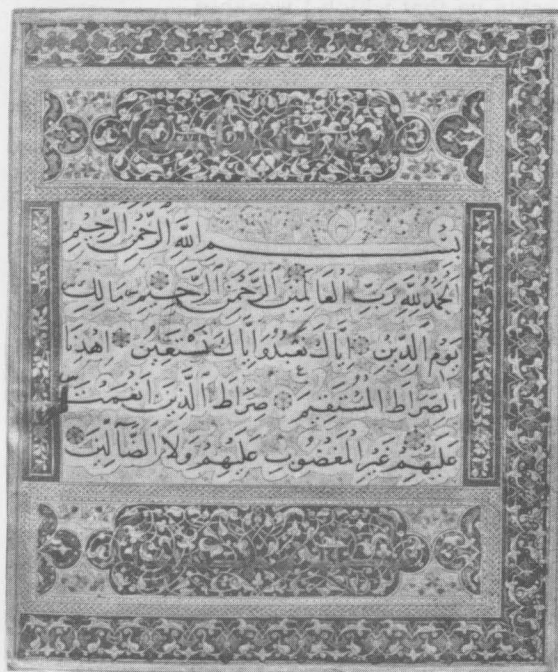 بِسْمِ اللَّهِ الرَّحْمَنِ الرَّحِيمِ
الْحَمْدُ لِلَّهِ رَبِّ الْعَالَمِينَ الرَّحْمَنِ الرَّحِيمِ مَالِكِ
يَوْمِ الدِّينِ إِيَّاكَ نَعْبُدُ وَإِيَّاكَ نَسْتَعِينُ اهْدِنَا
الصِّرَاطَ الْمُسْتَقِيمَ صِرَاطَ الَّذِينَ أَنْعَمْتَ
عَلَيْهِمْ غَيْرِ الْمَغْضُوبِ عَلَيْهِمْ وَلَا الضَّآلِّينَ